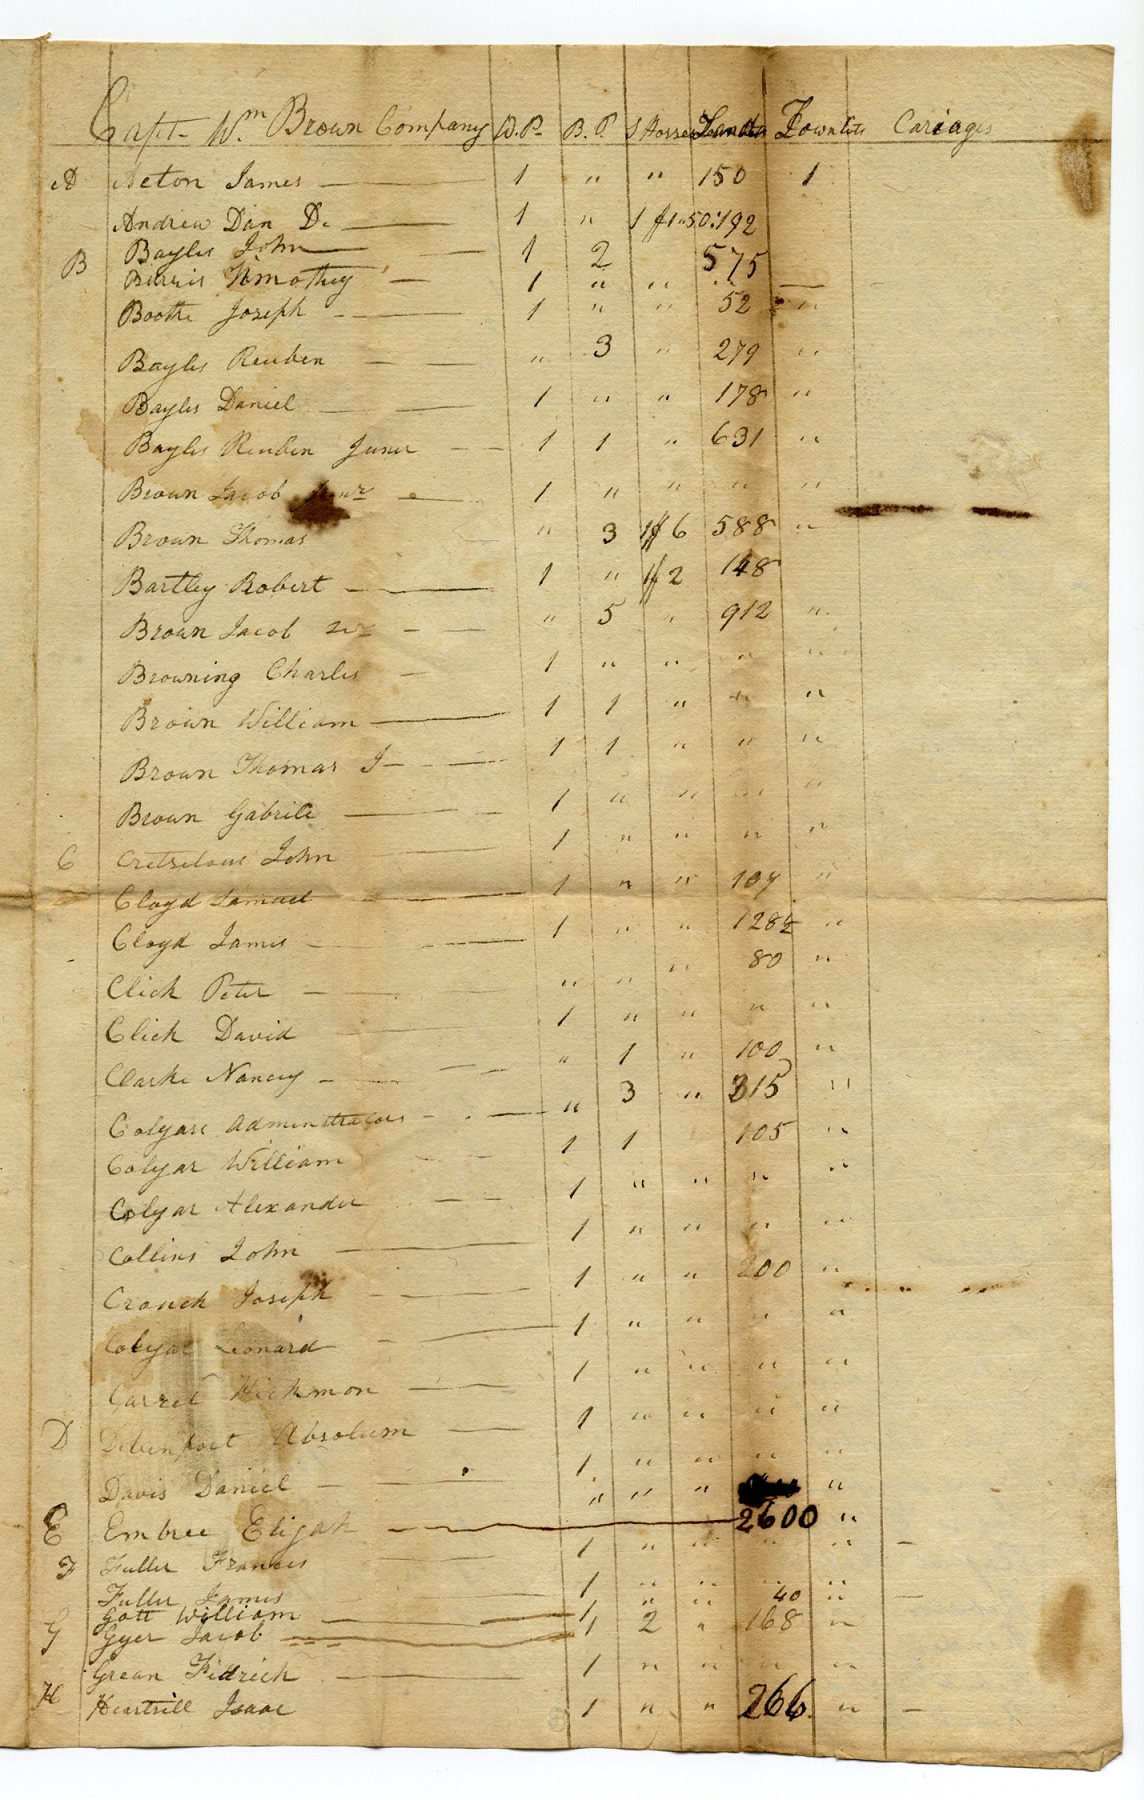 Capt Wm Brown Company W.P. B.P. S Horses Lands Townlots Cariages
A Acton James 1 " " 150 1
Andrew Dan D. 1 " 1 50 192
B Bayles John 1 2 575
Burris Timothey 1 " " "
Boothe Joseph 1 " " 52 "
Bayles Reuben " 3 " 279 "
Bayles Daniel 1 " " 178 "
Bayles Reuben Juner 1 1 " 631 "
Brown Jacob 1 " " " "
Brown Thomas " 3 1 6 588 "
Bartley Robert 1 " 1 2 148
Brown Jacob " 5 " 912 "
Browning Charles 1 " " " "
Brown William 1 1 " " "
Brown Thomas J 1 1 " " "
Brown Gabrile 1 " " " "
C Cretselous John 1 " " " "
Cloyd Samuel 1 " " 107 "
Cloyd James 1 " " 128½ "
Click Peter " " " 80 "
Click David 1 " " " "
Clarke Nancy " 1 " 100 "
Colyar Adminstrators " 3 " 315 "
Colyar William 1 1 105 "
Colyar Alexander 1 " " " "
Collins John 1 " " " "
Crouch Joseph 1 " " 200 "
Colyar Leonard 1 " " " "
Carrel Hickmon 1 " " " "
D Debenport Absolum 1 " " " "
Davis Daniel 1 " " " "
E Embree Elijah " " " 2600 "
F Fuller Frances 1 " " " "
Fuller James 1 " " " "
Gott William 1 " " 40 "
G Gyer Jacob 1 2 " 168 "
Grean Fidrick 1 " " " "
H Heartsill Isaac 1 " " 266 "